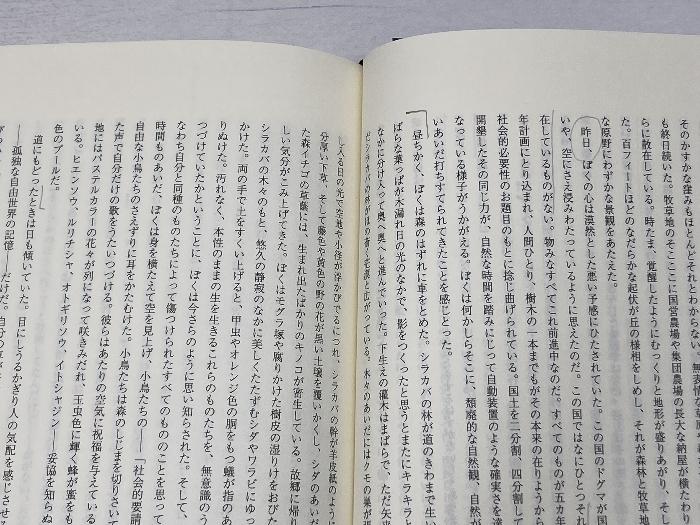 そのかすかな窪みもほとんどそれとわからない。無表情な
も終日続いた。牧草地のそこここに国営農場や集団農場の長大な納屋が横たわ
らに散在している。時たま、覚醒したようにむっくりと地形が盛りあがり、そし
た。百フィートほどのなだらかな起伏が丘の様相をしめし、それが森林と牧草地
な原野にわずかな景観をあたえた。
昨日、ぼくの心は漠然とした悪い予感にひたされていた。この国のドグマが
いや、空にさえ浸みわたっているように思えたのだ。この国ではなにひとつそれ
在しているものがない。物みなすべてこれ前進中なのだ。すべてのものが五カ年
年計画にとり込まれ、人間ひとり、樹木の一本までもがその本来の在りようか
社会的必要性のお題目のもとに捻じ曲げられている。国土を二分割、四分割して
開墾したその同じ力が、自然な時間を踏みにじって自動装置のような確実さを達
なっている様子がうかがえる。ぼくは何かしらそこに、頽廃的な自然観、自然が
いあいだ打ちすてられてきたことを感じとった。
昼ちかく、ぼくは森のはずれに車をとめた。シラカバの林が道のきわまで生い
ばらな葉っぱが木漏れ日の光のなかで、影をつくったと思うとまたにキラキラと
なかに分け入って奥へ奥へと進んでいった。下生えの灌木はまばらで、ただ矢来
し入る日の光で空地や小径が浮かびでるにつれ、シラカバの幹が羊皮紙のように
分厚い下草、そして藤色や黄色の野の花が黒い土壌を覆いかくし、シダのあいだ
た森イチゴの草藪には、生まれ出たばかりのキノコが密生している。故郷に帰り
しい気分がこみ上げてきた。ぼくはモグラ塚や腐りかけた樹皮の湿りけをおびた
シラカバの木々のもと、悠久の静寂のなかに美しくたたずむシダやワラビにゆっ
かけた。両の手で土をすくい上げると、甲虫やオレンジ色の胴をもつ蟻が指のあ
りぬけた。汚れなく、本性のままの生を生きるこれらのものたちを、無意識のう
つづけていたかということに、ぼくは今さらのように思い知らされた。そして、
なわち自分と同種のものたちによって傷つけられたすべてのもののことを思って
時間ものあいだ、ぼくは身を横たえて空を見上げ、小鳥たちの――「社会的要請
自由な小鳥たちのさえずりに耳をかたむけた。小鳥たちは森のしじまを切りさいて
た声で自分だけの歌をうたいつづける。彼らはあたりの空気に祝福を与えている
地にはパステルカラーの花々が列になって咲きみだれ、玉虫色に輝く蜂が蜜をも
いる。ヒエンソウ、ルリチシャ、オトギリソウ、イトシャジン――妥協を知らぬ
色のプールだ。
道にもどったときは日も傾いていた。日にしうるかぎり人の気配を感じさせ
――孤独な自由世界の記憶――だけだ。